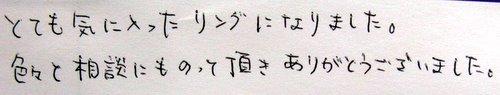 とても気に入ったリングになりました。
色々と相談にものって頂きありがとうございました。